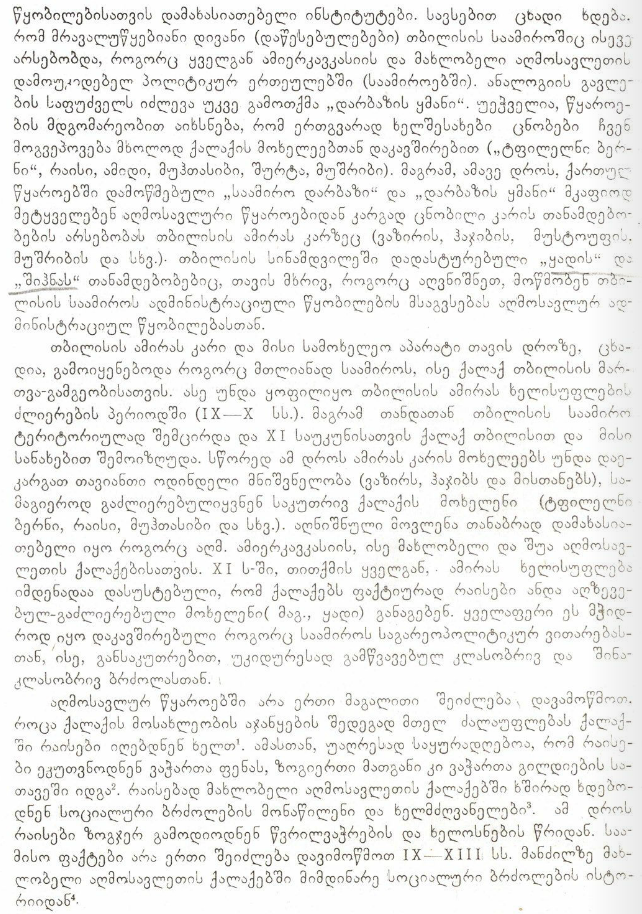 წყობილებისათვის დამახასიათებელი ინსტიტუტები. სავსებით ცხადი ხდება.
რომ მრავალუწყებიანი დივანი (დაწესებულებები) თბილისის საამიროშიც ისევე
არსებობდა, როგორც ყველგან ამიერკავკასიის და მახლობელი აღმოსავლეთის
დამოუკიდებელ პოლიტიკურ ერთეულებში (საამიროებში). ანალოგიის გავლე-
ბის საფუძველს იძლევა უკვე გამოთქმა „დარბაზის ყმანი“. უეჭველია, წყაროე-
ბის მდგომარეობით აიხსნება, რომ ერთგვარად ხელშესახები ცნობები ჩვენ
მოგვეპოვება მხოლოდ ქალაქის მოხელეებთან დაკავშირებით („ტფილელნი ბერ-
ნი“, რაისი, ამიდი, მუჰთასიბი, შურტა, მუშრიბი). მაგრამ, ამავე დროს, ქართულ
წყაროებში დამოწმებული „საამირო დარბაზი“ და „დარბაზის ყმანი“ მკაფიოდ
მეტყველებენ აღმოსავლური წყაროებიდან კარგად ცნობილი კარის თანამდებო-
ბების არსებობას თბილისის ამირას კარზეც (ვაზირის, ჰაჯიბის, მუსტოუფის,
მუშრიბის და სხვ.). თბილისის სინამდვილეში დადასტურებული „ყადის“ და
„შიჰნას“ თანამდებობებიც, თავის მხრივ, როგორც აღვნიშნეთ, მოწმობენ თბი-
ლისის საამიროს ადმინისტრაციული წყობილების მსგავსებას აღმოსავლურ ად-
მინისტრაციულ წყობილებასთან.
თბილისის ამირას კარი და მისი სამოხელეო აპარატი თავის დროზე, ცხა-
დია, გამოიყენებოდა როგორც მთლიანად საამიროს, ისე ქალაქ თბილისის მარ-
თვა-გამგეობისათვის. ასე უნდა ყოფილიყო თბილისის ამირას ხელისუფლების
ძლიერების პერიოდში (IX—X სს.). მაგრამ თანდათან თბილისის საამირო
ტერიტორიულად შემცირდა და XI საუკუნისათვის ქალაქ თბილისით და მისი
სანახებით შემოიზღუდა. სწორედ ამ დროს ამირას კარის მოხელეებს უნდა დაე-
კარგათ თავიანთი ოდინდელი მნიშვნელობა (ვაზირს, ჰაჯიბს და მისთანებს), სა-
მაგიეროდ გაძლიერებულიყვნენ საკუთრივ ქალაქის მოხელენი (ტფილელნი
ბერნი, რაისი, მუჰთასიბი და სხვ.). აღნიშნული მოვლენა თანაბრად დამახასია-
თებელი იყო როგორც აღმ. ამიერკავკასიის, ისე მახლობელი და შუა აღმოსავ-
ლეთის ქალაქებისათვის. XI ს-ში, თითქმის ყველგან, ამირას ხელისუფლება
იმდენადაა დასუსტებული, რომ ქალაქებს ფაქტიურად რაისები ანდა აღზევე-
ბულ-გაძლიერებული მოხელენი( მაგ., ყადი) განაგებენ. ყველაფერი ეს მჭიდ-
როდ იყო დაკავშირებული როგორც საამიროს საგარეოპოლიტიკურ ვითარებას-
თან, ისე, განსაკუთრებით, უკიდურესად გამწვავებულ კლასობრივ და შინა-
კლასობრივ ბრძოლასთან.
აღმოსავლურ წყაროებში არა ერთი მაგალითი შეიძლება დავამოწმოთ.
როცა ქალაქის მოსახლეობის აჯანყების შედეგად მთელ ძალაუფლებას ქალაქ-
ში რაისები იღებდნენ ხელთ¹. ამასთან, უაღრესად საყურადღებოა, რომ რაისე-
ბი ეკუთვნოდნენ ვაჭართა ფენას, ზოგიერთი მათგანი კი ვაჭართა გილდიების სა-
თავეში იდგა². რაისებად მახლობელი აღმოსავლეთის ქალაქებში ხშირად ხდებო-
დნენ სოციალური ბრძოლების მონაწილენი და ხელმძღვანელები³. ამ დროს
რაისები ზოგჯერ გამოდიოდნენ წვრილვაჭრების და ხელოსნების წრიდან. საა-
მისო ფაქტები არა ერთი შეიძლება დავიმოწმოთ IX—XIII სს. მანძილზე მახ-
ლობელი აღმოსავლეთის ქალაქებში მიმდინარე სოციალური ბრძოლების ისტო-
რიიდან⁴.